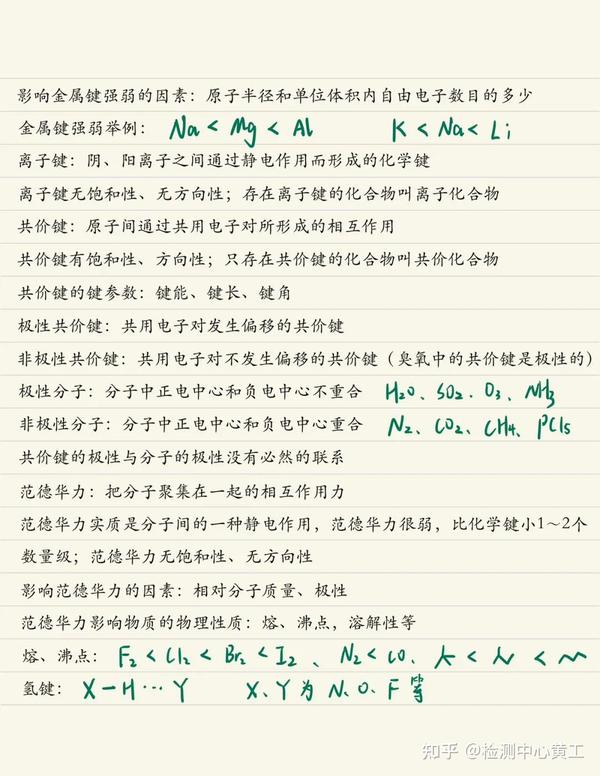 影响金属键强弱的因素：原子半径和单位体积内自由电子数目的多少
金属键强弱举例： Na < Mg < Al K < Na < Li
离子键：阴、阳离子之间通过静电作用而形成的化学键
离子键无饱和性、无方向性；存在离子键的化合物叫离子化合物
共价键：原子间通过共用电子对所形成的相互作用
共价键有饱和性、方向性；只存在共价键的化合物叫共价化合物
共价键的键参数：键能、键长、键角
极性共价键：共用电子对发生偏移的共价键
非极性共价键：共用电子对不发生偏移的共价键（臭氧中的共价键是极性的）
极性分子：分子中正电中心和负电中心不重合 H₂O、SO₂、O₃、NH₃
非极性分子：分子中正电中心和负电中心重合 N₂、CO₂、CH₄、PCl₅
共价键的极性与分子的极性没有必然的联系
范德华力：把分子聚集在一起的相互作用力
范德华力实质是分子间的一种静电作用，范德华力很弱，比化学键小1～2个
数量级；范德华力无饱和性、无方向性
影响范德华力的因素：相对分子质量、极性
范德华力影响物质的物理性质：熔、沸点，溶解性等
熔、沸点： F₂ < Cl₂ < Br₂ < I₂、N₂ < CO、 < <
氢键： X—H…Y X、Y为N、O、F等
知乎 @检测中心黄工